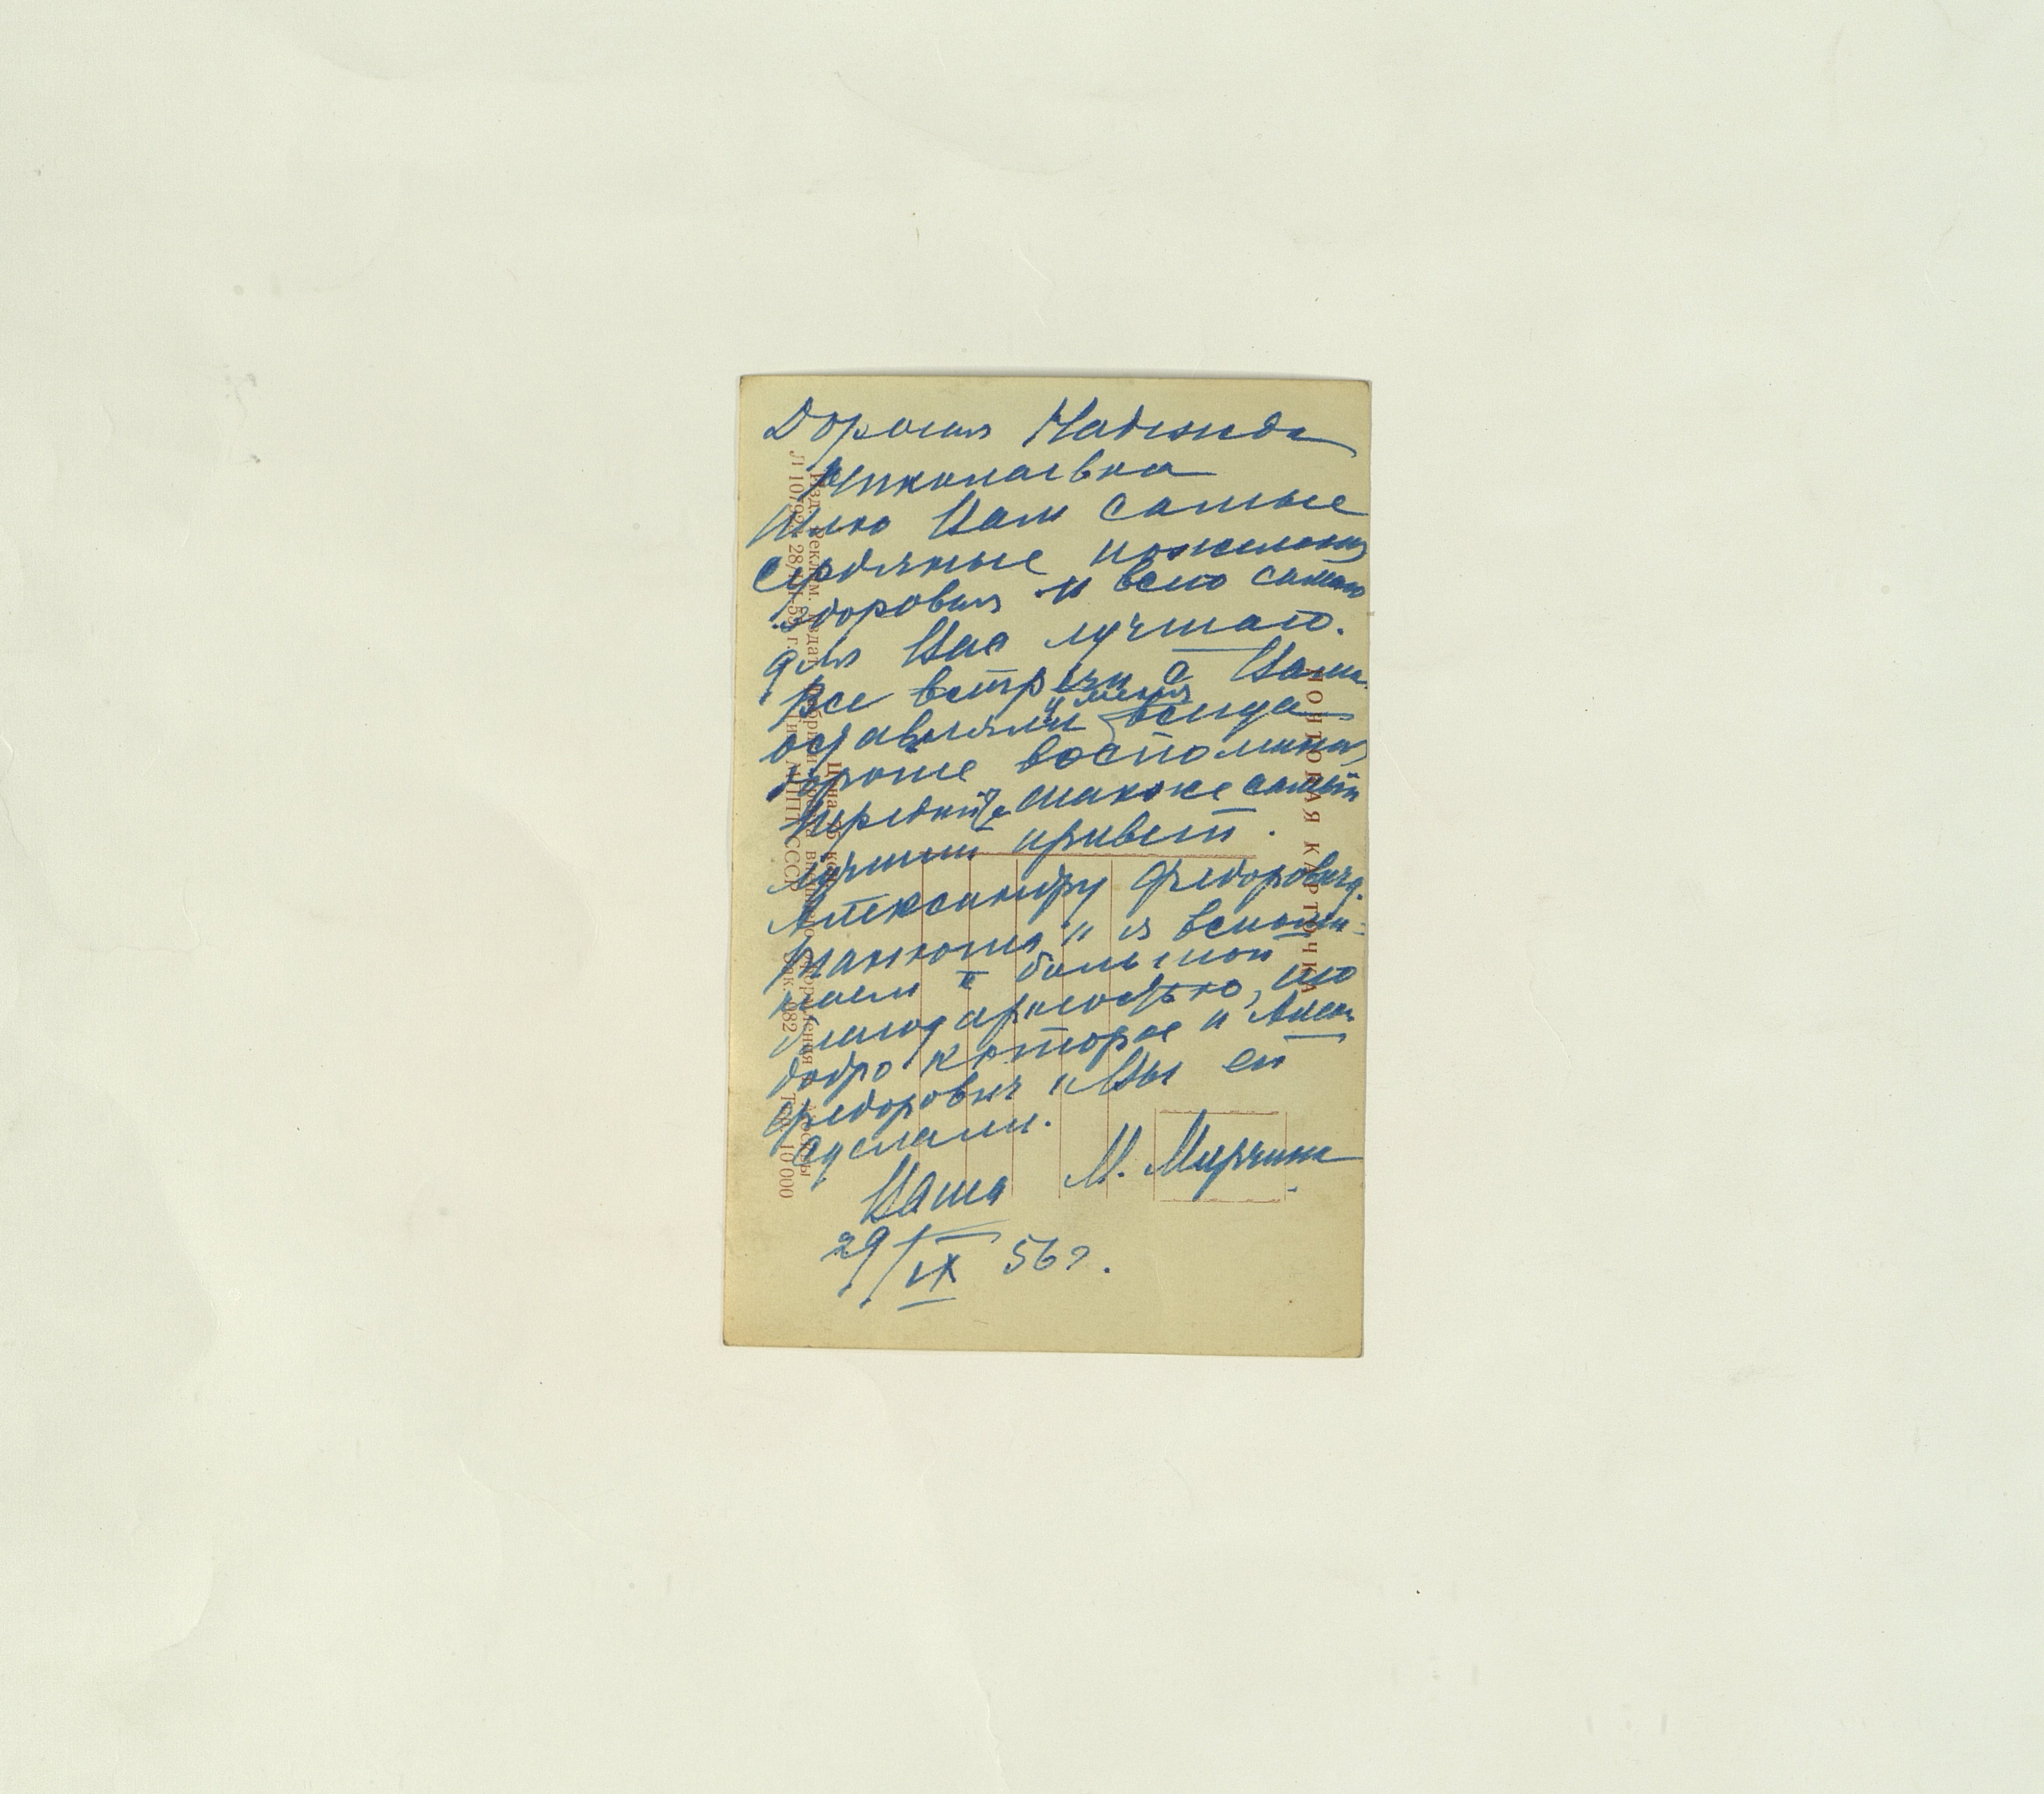 Дорогая Надежда
Николаевна
Шлю Вам самые
сердечные пожелания
здоровья и всего самого
для Вас лучшего.
Все встречи с Вами
оставляли у меня всегда
хорошие воспоминан
Передайте также самый
лучший привет
Александру Федоровичу.
Танюша и я вспоми-
наем с большой
благодарностью, то
добро которое и Алек.
Федорович и Вы ей
сделали.
Ваша М.
29/IX 56 г.
ПОЧТОВАЯ КАРТОЧКА
Цена коп.